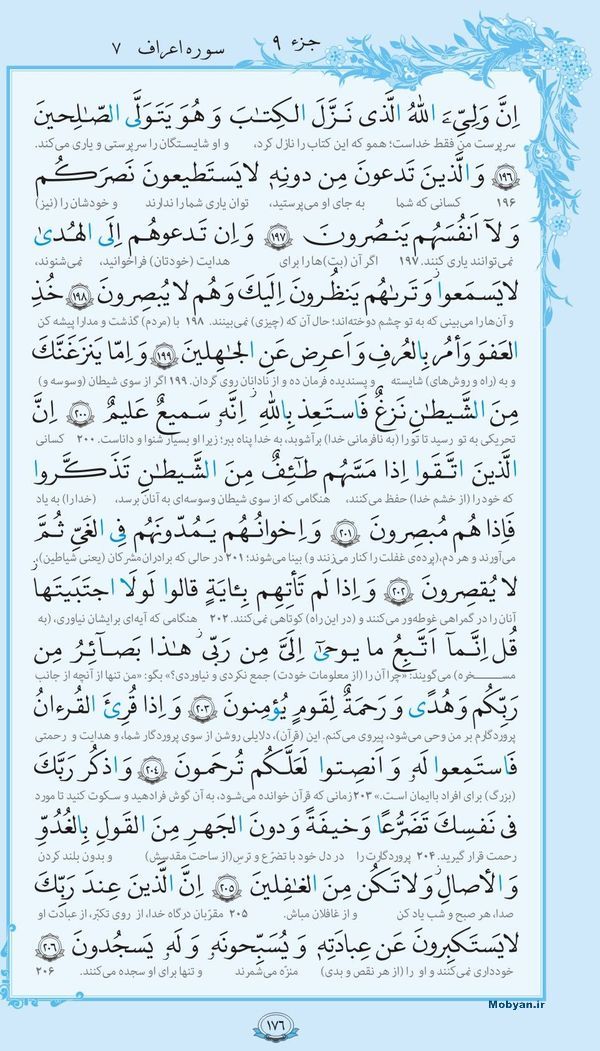 جزء ۹
سوره اعراف ۷
اِنَّ وَلِيِّـيَ اللّٰهُ الَّذى نَـزَّلَ الكِتٰبَ وَ هُوَ يَتَوَلَّى الصّٰلِحينَ
سرپرست من فقط خداست؛ همو که این کتاب را نازل کرد، و او شایستگان را سرپرستی و یاری می‌کند.
۱۹۶ وَ الَّذينَ تَدعونَ مِن دونِهٖ لا يَستَطيعونَ نَصرَكُم
۱۹۶ کسانی که شما به جای او می‌پرستید، توان یاری شما را ندارند و خودشان را (نیز)
وَ لآ اَنفُسَهُم يَنصُرونَ ۱۹۷ وَ اِن تَدعوهُم اِلَى الهُدىٰ
نمی‌توانند یاری کنند. ۱۹۷ اگر آن (بت)ها را برای هدایت (خودتان) فراخوانید، نمی‌شنوند،
لا يَسمَعوا وَ تَرىٰهُم يَنظُرونَ اِلَيكَ وَ هُم لا يُبصِرونَ ۱۹۸ خُذِ
و آن‌ها را می‌بینی که به تو چشم دوخته‌اند؛ حال آن که (چیزی) نمی‌بینند. ۱۹۸ با (مردم) گذشت و مدارا پیشه کن
العَفوَ وَ أمُر بِالعُرفِ وَ اَعرِض عَنِ الجٰهِلينَ ۱۹۹ وَ اِمّا يَنزَغَنَّكَ
و به (راه و روش‌های) شایسته و پسندیده فرمان ده و از نادانان روی گردان. ۱۹۹ اگر از سوی شیطان (وسوسه و)
مِنَ الشَّيطٰنِ نَزغٌ فَاستَعِذ بِاللّٰهِ ۚ اِنَّهٗ سَميعٌ عَليمٌ ۲۰۰ اِنَّ
تحریکی به تو رسید تا تو را (به نافرمانی خدا) برآشوبد، به خدا پناه ببر؛ زیرا او بسیار شنوا و داناست. ۲۰۰ کسانی
الَّذينَ اتَّقَوا اِذا مَسَّهُم طآئِفٌ مِنَ الشَّيطٰنِ تَذَكَّروا
که خود را (از خشم خدا) حفظ می‌کنند، هنگامی که از سوی شیطان وسوسه‌ای به آنان برسد، (خدا را) به یاد
فَاِذا هُم مُبصِرونَ ۲۰۱ وَ اِخوانُهُم يَمُدّونَهُم فِى الغَىِّ ثُمَّ
می‌آورند و هر دم، (پرده‌ی غفلت را کنار می‌زنند و) بینا می‌شوند؛ ۲۰۱ در حالی که برادران مشرکان (یعنی شیاطین)،
لا يُقصِرونَ ۲۰۲ وَ اِذا لَم تَأتِهِم بِـٔايَةٍ قالوا لَولَا اجتَبَيتَها ۚ
آنان را در گمراهی غوطه‌ور می‌کنند و (در این راه) کوتاهی نمی‌کنند. ۲۰۲ هنگامی که آیه‌ای برایشان نیاوری، (به
قُل اِنَّمآ اَتَّبِعُ ما يوحىٰٓ اِلَىَّ مِن رَبّى ۚ هٰذا بَصآئِرُ مِن
مسخره) می‌گویند: «چرا آن را (از معلومات خودت) جمع نکردی و نیاوردی؟» بگو: «من تنها از آنچه از جانب
رَبِّكُم وَ هُدًى وَ رَحمَةٌ لِقَومٍ يُؤمِنونَ ۲۰۳ وَ اِذا قُرِئَ القُرءانُ
پروردگارم بر من وحی می‌شود، پیروی می‌کنم. این (قرآن)، دلایلی روشن از سوی پروردگار شما، و هدایت و رحمتی
فَاستَمِعوا لَهٗ وَ اَنصِتوا لَعَلَّكُم تُرحَمونَ ۲۰۴ وَ اذكُر رَبَّكَ
(بزرگ) برای افراد باایمان است.» ۲۰۳ زمانی که قرآن خوانده می‌شود، به آن گوش فرادهید و سکوت کنید تا مورد
فى نَفسِكَ تَضَرُّعًا وَ خيفَةً وَ دونَ الجَهرِ مِنَ القَولِ بِالغُدُوِّ
رحمت قرار گیرید. ۲۰۴ پروردگارت را در دل خود با تضرّع و ترسِ (از ساحت مقدسش) و بدون بلند کردن
وَ الأصالِ وَ لا تَكُن مِنَ الغٰفِلينَ ۲۰۵ اِنَّ الَّذينَ عِندَ رَبِّكَ
صدا، هر صبح و شب یاد کن و از غافلان مباش. ۲۰۵ مقرّبان درگاه خدا، از روی تکبّر، از عبادت او
لا يَستَكبِرونَ عَن عِبادَتِهٖ وَ يُسَبِّحونَهٗ وَ لَهٗ يَسجُدونَ ۲۰۶
خودداری نمی‌کنند و او را (از هر نقص و بدی) منزّه می‌شمرند و تنها برای او سجده می‌کنند. ۲۰۶
۱۷۶
Mobyan.ir